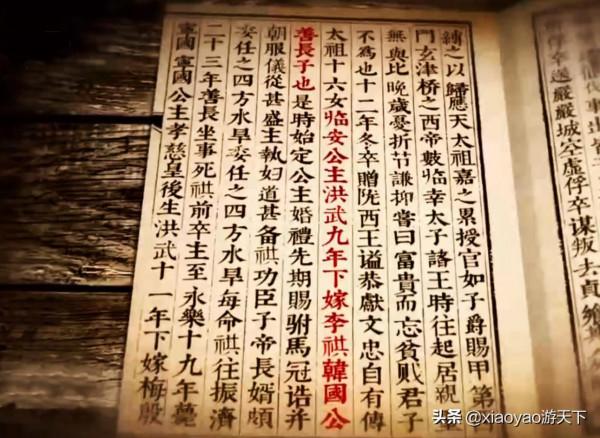 嚴城空虛俘卒謀叛
縛之以歸應天太祖嘉之累授官如子爵賜甲第
門玄津桥之西帝數临幸太子諸王時往起居親
無與比晚歲憂折节謙抑嘗曰富貴而忘貧贱君子
不為也十二年冬卒贈陇西王谥恭獻文忠自有傳
太祖十六女临安公主洪武九年下嫁李祺韓國公
善長子也是時始定公主婚禮先期賜駙馬冠诰并
朝服儀從甚盛主執妇道甚备祺功臣子帝長婿頗
委任之四方水旱委任之四方水旱每命祺往振濟
二十三年善長坐事死祺前卒主至永樂十九年薨
寧國 寧國 公主孝慈皇後生洪武十一年下嫁梅殷
头条 @xiaoyao游天下